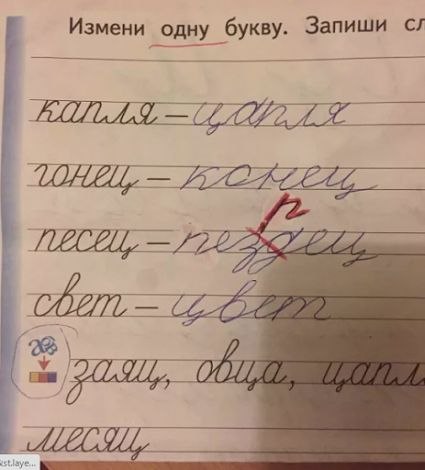 Измени одну букву. Запиши сл
капля – цапля
гонец – конец
п
песец – пездец
свет – цвет
заяц, овца, цапл
месяц
&st.laye...